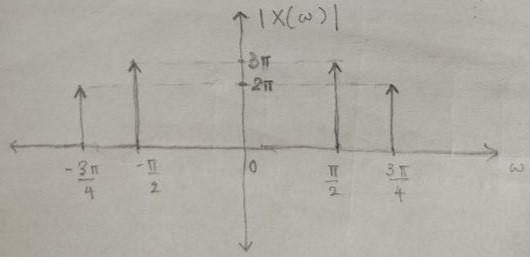 |X(ω)|
3π
2π
-3π/4
-π/2
0
π/2
3π/4
ω